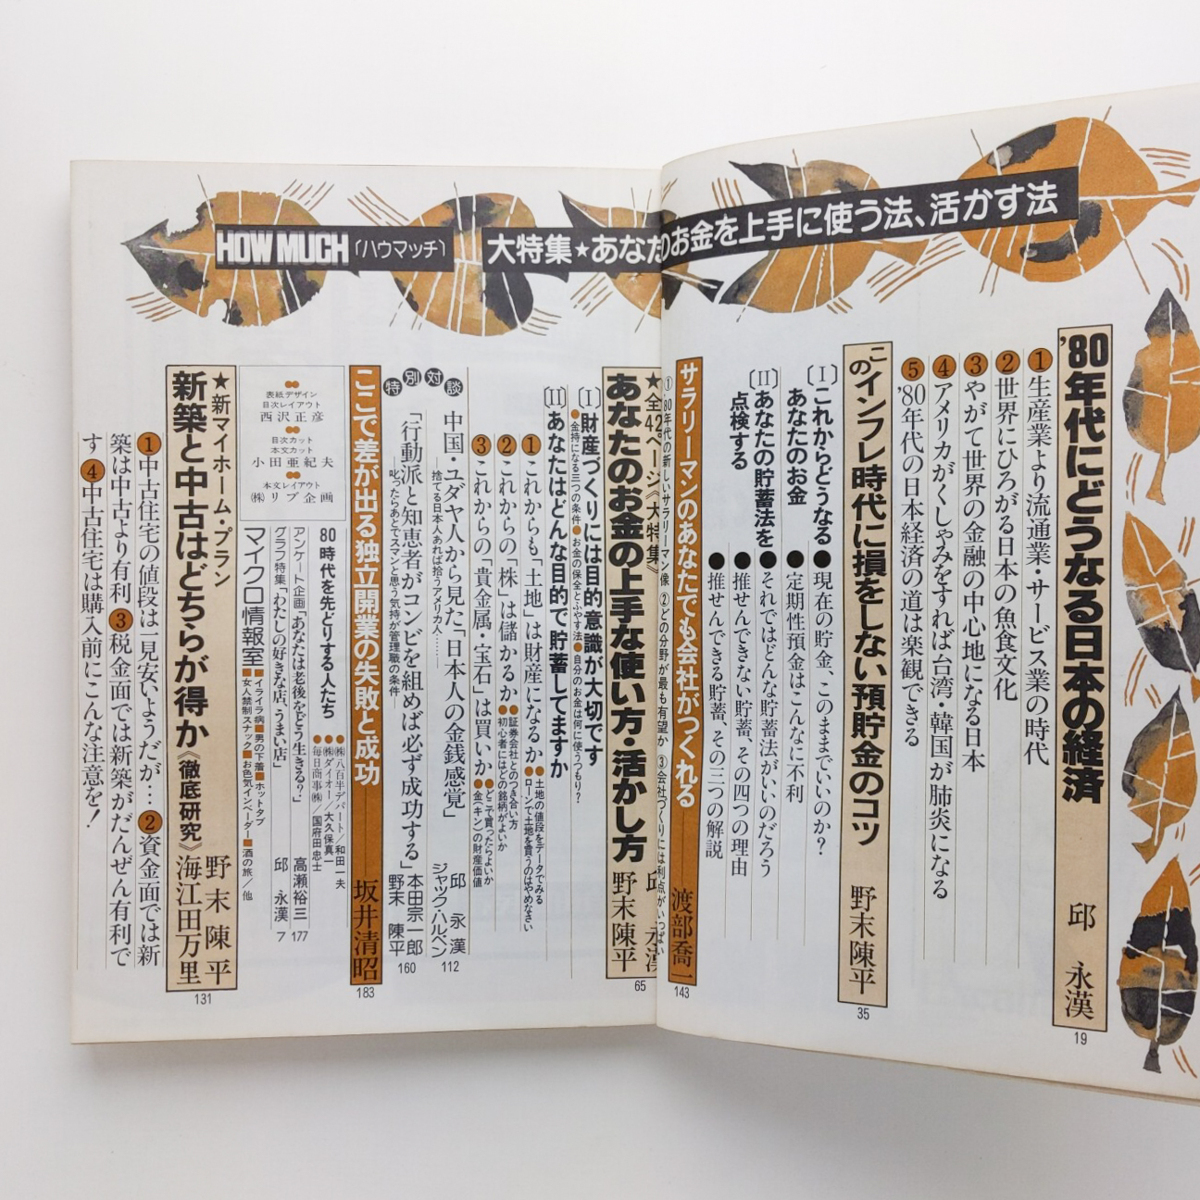 HOW MUCH〔ハウマッチ〕 大特集★あなたのお金を上手に使う法、活かす法
'80年代にどうなる日本の経済
邱 永漢
19
❶生産業より流通業・サービス業の時代
❷世界にひろがる日本の魚食文化
❸やがて世界の金融の中心地になる日本
❹アメリカがくしゃみをすれば台湾・韓国が肺炎になる
❺'80年代の日本経済の道は楽観できる
このインフレ時代に損をしない預貯金のコツ
野末陳平
35
〔I〕これからどうなる
あなたのお金
●現在の貯金、このままでいいのか?
●定期性預金はこんなに不利
〔II〕あなたの貯蓄法を
点検する
●それではどんな貯蓄法がいいのだろう
●推せんできない貯蓄、その四つの理由
●推せんできる貯蓄、その三つの解説
サラリーマンのあなたでも会社がつくれる
渡部喬一
143
①'80年代の新しいサラリーマン像 ②どの分野が最も有望か ③会社づくりには利点がいっぱい
★全42ページ《大特集》
あなたのお金の上手な使い方・活かし方
邱 永漢
野末陳平
65
〔I〕財産づくりには目的意識が大切です
●金持になる三つの条件 ●お金の保全とふやす法 ●自分のお金は何に使うつもり?
〔II〕あなたはどんな目的で貯蓄してますか
❶これからも「土地」は財産になるか
●土地の値段をデータでみる
●ローンで土地を買うのはやめなさい
❷これからの「株」は儲かるか
●証券会社とのつき合い方
●初心者にはどの銘柄がよいか
❸これからの「貴金属・宝石」は買いか
●どこで買ったらよいか
●金(キン)の財産価値
特別対談
中国・ユダヤ人から見た「日本人の金銭感覚」
―捨てる日本人あれば拾うアメリカ人……―
邱 永漢
ジャック・ハルペン
112
「行動派と知恵者がコンビを組めば必ず成功する」
―叱ったらあとでスマンと思う気持が管理職の条件―
本田宗一郎
野末 陳平
160
ここで差が出る独立開業の失敗と成功
坂井清昭
183
80時代を先どりする人たち
●㈱八百半デパート/和田一夫
●㈱ダイオー/大久保真一
●毎日商事㈱/国府田忠士
アンケート企画「あなたは老後をどう生きる?」
高瀬裕三
177
グラフ特集「わたしの好きな店、うまい店」
邱 永漢
7
マイクロ情報室
■イライラ病■男の下着■ホットタブ
■女人禁制スナック■お色気インベーダー■酒の旅/他
表紙デザイン
目次レイアウト
西沢正彦
目次カット
本文カット
小田亜紀夫
本文レイアウト
㈱リブ企画
★新マイホーム・プラン
新築と中古はどちらが得か《徹底研究》
野末陳平
海江田万里
131
❶中古住宅の値段は一見安いようだが… ❷資金面では新
築は中古より有利 ❸税金面では新築がだんぜん有利で
す ❹中古住宅は購入前にこんな注意を!